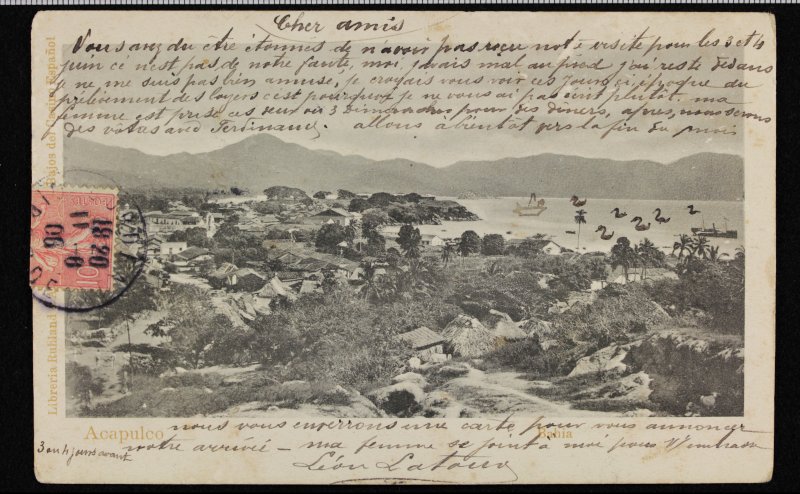 Cher amis
Vous avez du être étonnés de n avoir pas reçu notre visite pour les 3 et 4
juin ce n'est pas de notre faute, moi, j'avais mal au pied j'ai resté dedans
je ne me suis pas bien amusé, je croyais vous voir ces jours ci époque du
prélèvement des loyers c'est pourquoi je ne vous ai pas écrit plutôt. ma
femme est prise ces deux ou 3 dimanches pour des diners, après, nous serons
des vôtres avec Ferdinand. allons à bientôt vers la fin du mois
nous vous enverrons une carte pour vous annoncer
3 ou 4 jours avant
notre arrivée – ma femme se joint à moi pour
Léon Latour
Acapulco
Bahia
Libreria Ruhland
Bajos del Casino Español
POSTES
10
18 20
11 - 6
06